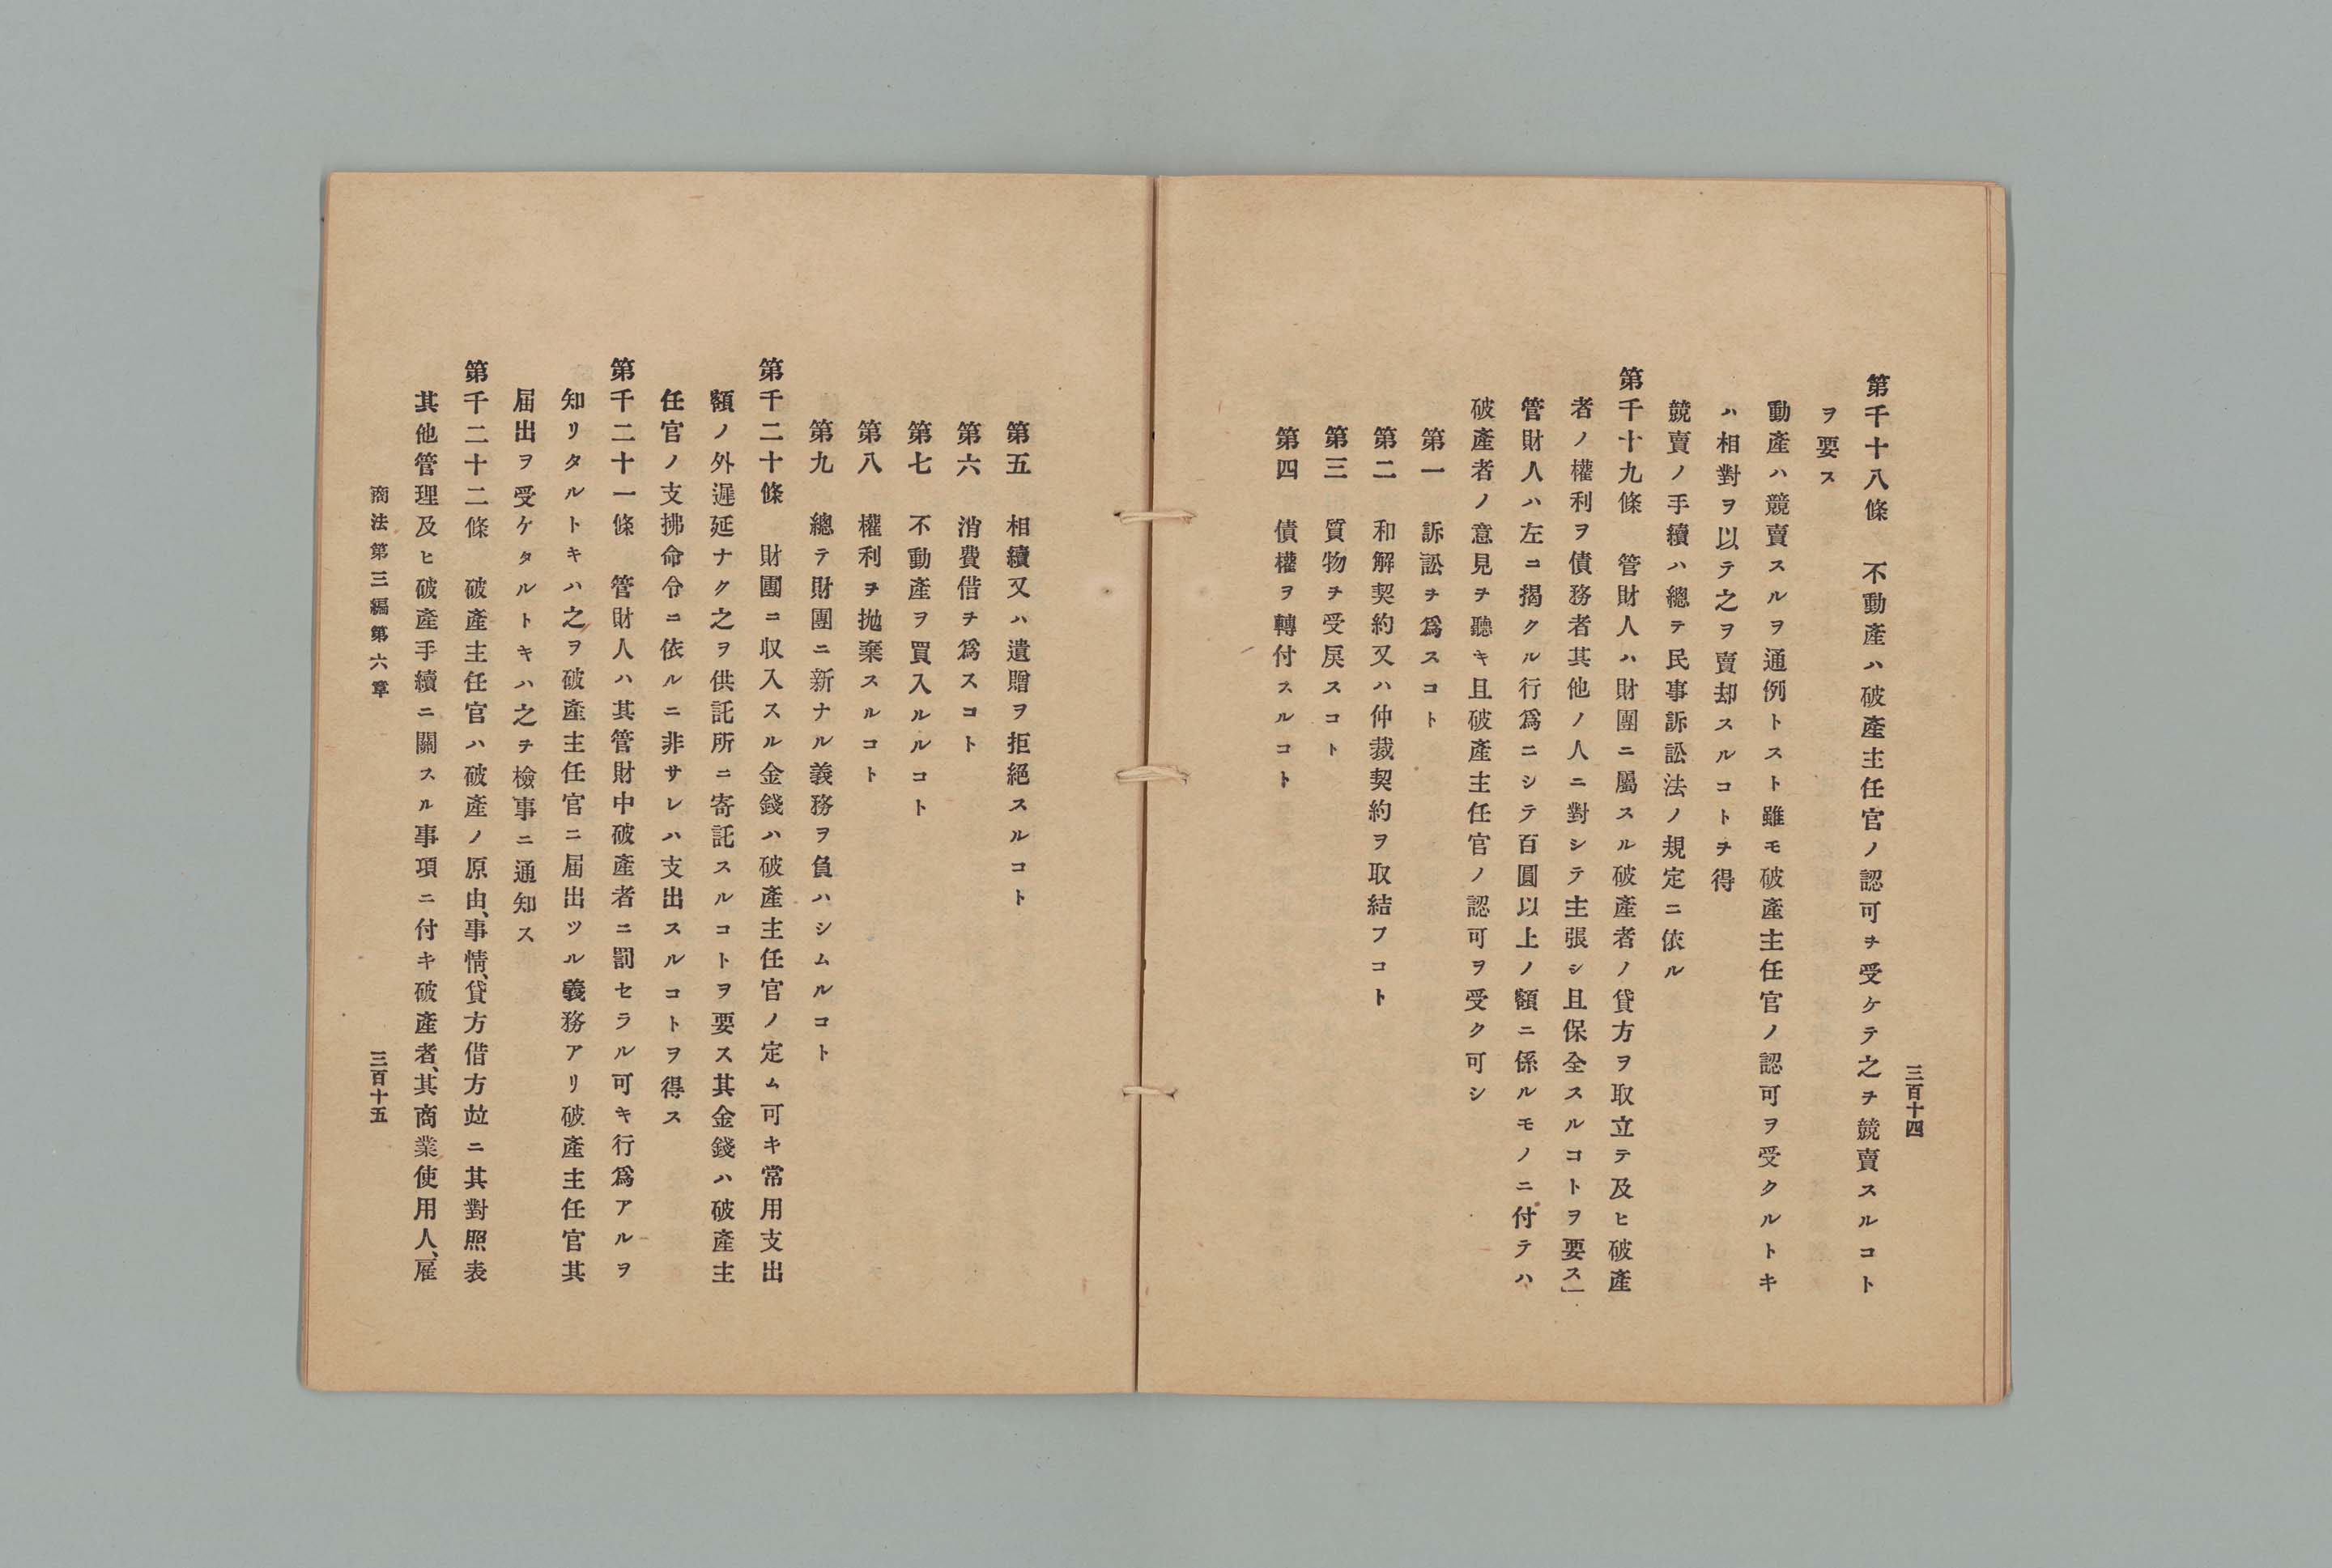 三百十四
第千十八條　不動產ハ破產主任官ノ認可ヲ受ケテ之ヲ競賣スルコト
ヲ要ス
動產ハ競賣スルヲ通例トスト雖モ破產主任官ノ認可ヲ受クルトキ
ハ相對ヲ以テ之ヲ賣却スルコトヲ得
競賣ノ手續ハ總テ民事訴訟法ノ規定ニ依ル
第千十九條　管財人ハ財團ニ屬スル破產者ノ貸方ヲ取立テ及ヒ破產
者ノ權利ヲ債務者其他ノ人ニ對シテ主張シ且保全スルコトヲ要ス」
管財人ハ左ニ揭クル行爲ニシテ百圓以上ノ額ニ係ルモノニ付テハ
破產者ノ意見ヲ聽キ且破產主任官ノ認可ヲ受ク可シ
第一　訴訟ヲ爲スコト
第二　和解契約又ハ仲裁契約ヲ取結フコト
第三　質物ヲ受戾スコト
第四　債權ヲ轉付スルコト
第五　相續又ハ遺贈ヲ拒絕スルコト
第六　消費借ヲ爲スコト
第七　不動產ヲ買入ルルコト
第八　權利ヲ拋棄スルコト
第九　總テ財團ニ新ナル義務ヲ負ハシムルコト
第千二十條　財團ニ收入スル金錢ハ破產主任官ノ定ム可キ常用支出
額ノ外遲延ナク之ヲ供託所ニ寄託スルコトヲ要ス其金錢ハ破產主
任官ノ支拂命令ニ依ルニ非サレハ支出スルコトヲ得ス
第千二十一條　管財人ハ其管財中破產者ニ罰セラル可キ行爲アルヲ
知リタルトキハ之ヲ破產主任官ニ届出ツル義務アリ破產主任官其
届出ヲ受ケタルトキハ之ヲ檢事ニ通知ス
第千二十二條　破產主任官ハ破產ノ原由、事情、貸方借方竝ニ其對照表
其他管理及ヒ破產手續ニ關スル事項ニ付キ破產者、其商業使用人、雇
商法第三編第六章
三百十五